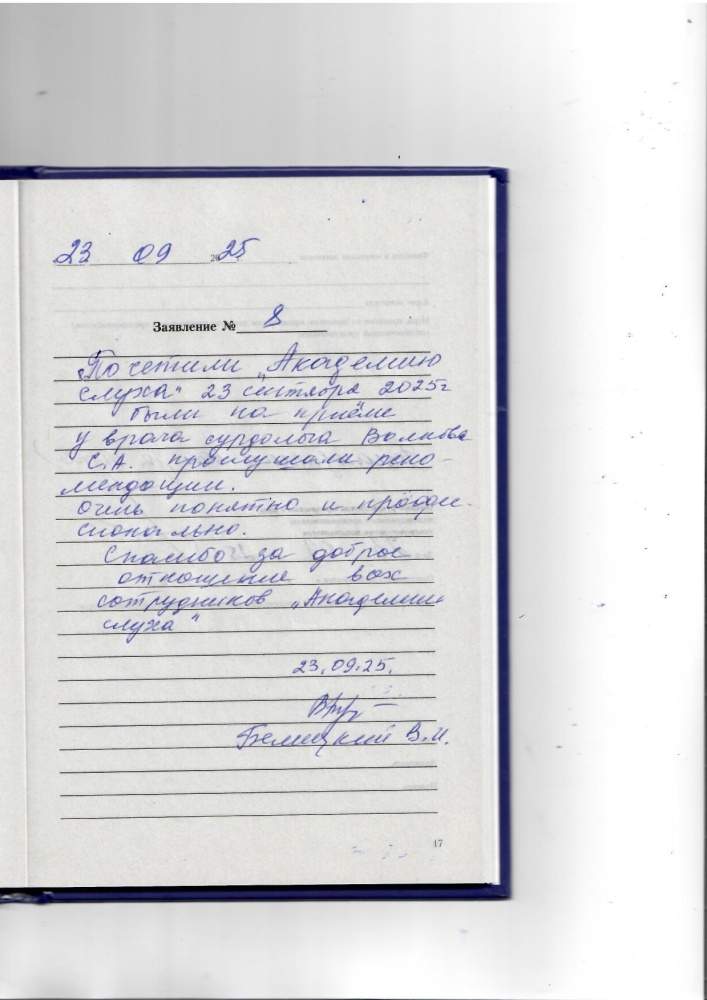 23 09 2025
Заявление № 8
Посетили „Академию
слуха" 23 сентября 2025г
были на приёме
у врача сурдолога Волкова
С.А. прослушали реко-
мендации.
Очень понятно и профес-
сионально.
Спасибо за доброе
отношение всех
сотрудников „Академии
слуха"
23.09.25.
В.И.
17